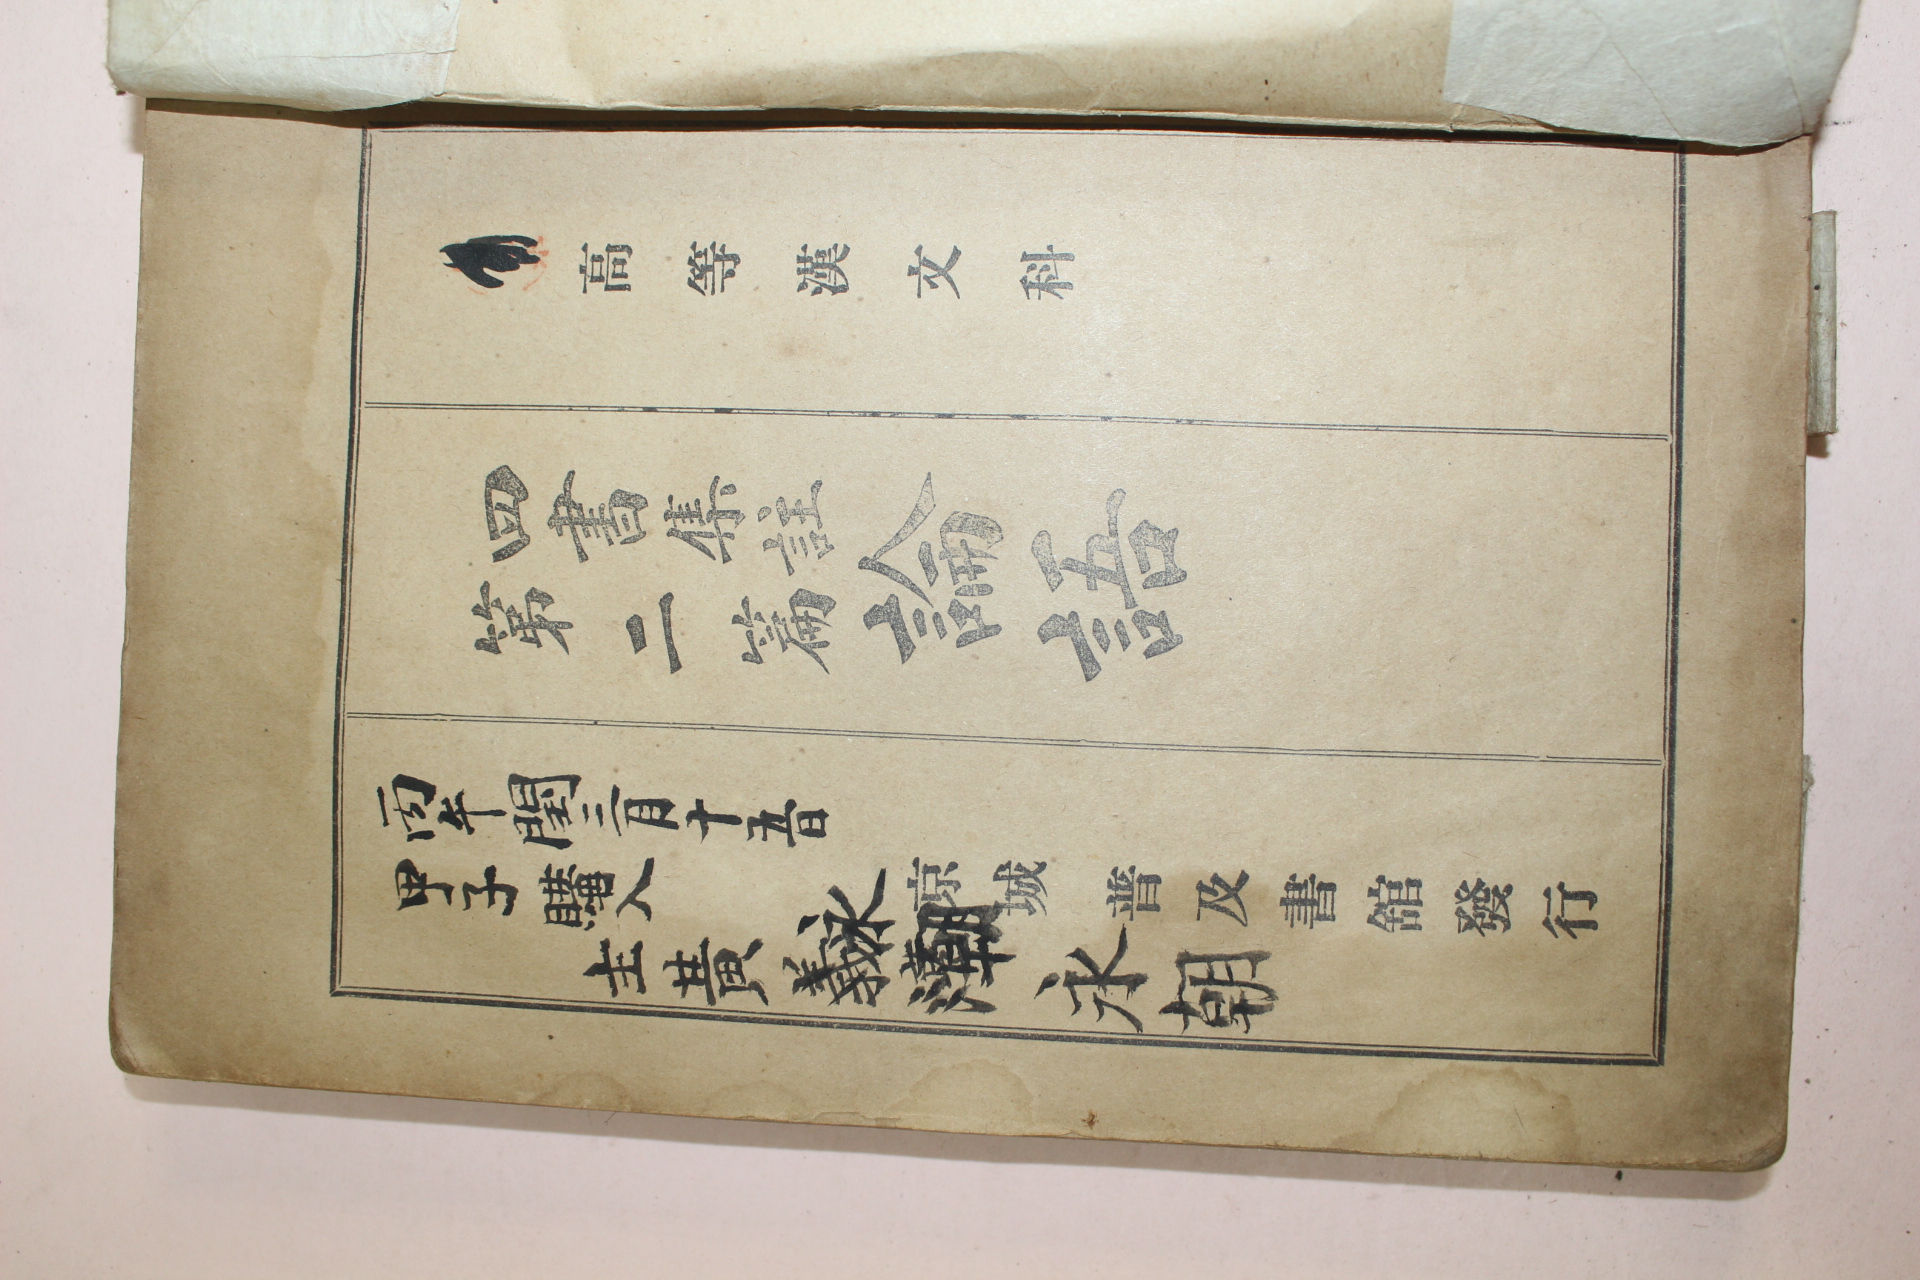 高等漢文科
四書集註
第二篇
論語
丙年閏三月十五日
甲子購入
京城普及書館發行
主黃義
永朝